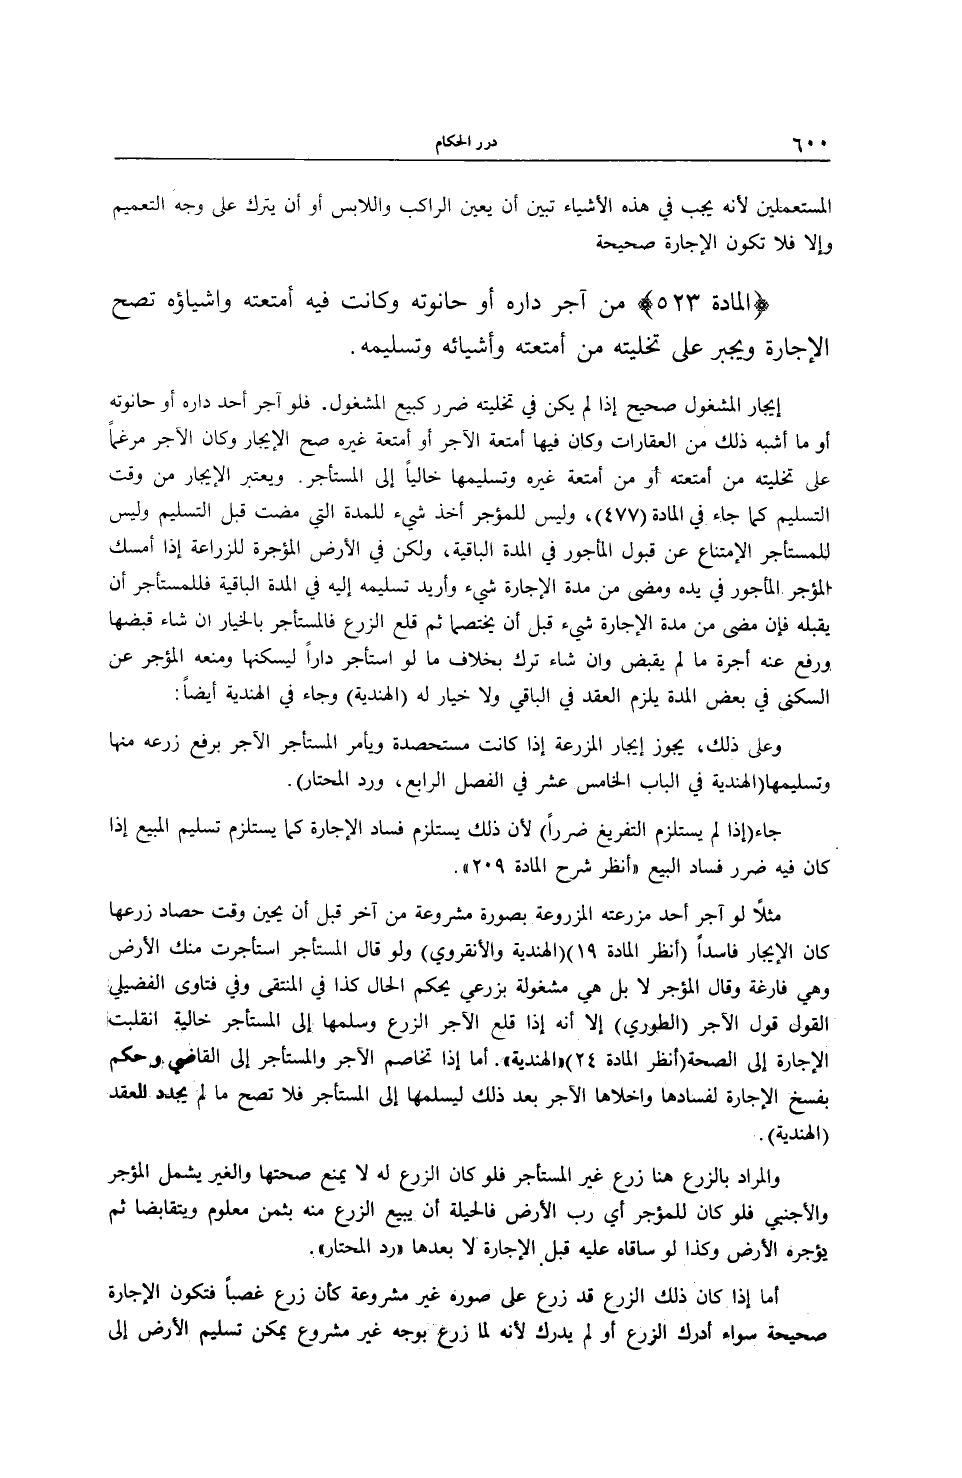 ٦٠٠
درر الحكام
المستعملين لأنه يجب في هذه الأشياء تبين أن يعين الراكب واللابس أو أن يترك على وجه التعميم
وإلا فلا تكون الإجارة صحيحة
﴿المادة ٥٢٣﴾ من آجر داره أو حانوته وكانت فيه أمتعته واشياؤه تصح
الإجارة ويجبر على تخليته من أمتعته وأشيائه وتسليمه.
إيجار المشغول صحيح إذا لم يكن في تخليته ضرر كبيع المشغول. فلو آجر أحد داره أو حانوته
أو ما أشبه ذلك من العقارات وكان فيها أمتعة الآجر أو أمتعة غيره صح الإيجار وكان الآجر مرغماً
على تخليته من أمتعته أو من أمتعة غيره وتسليمها خالياً إلى المستأجر. ويعتبر الإيجار من وقت
التسليم كما جاء في المادة (٤٧٧)، وليس للمؤجر أخذ شيء للمدة التي مضت قبل التسليم وليس
للمستأجر الإمتناع عن قبول المأجور في المدة الباقية، ولكن في الأرض المؤجرة للزراعة إذا أمسك
المؤجر المأجور في يده ومضى من مدة الإجارة شيء وأريد تسليمه إليه في المدة الباقية فللمستأجر أن
يقبله فإن مضى من مدة الإجارة شيء قبل أن يختصما ثم قلع الزرع فالمستأجر بالخيار ان شاء قبضها
ورفع عنه أجرة ما لم يقبض وان شاء ترك بخلاف ما لو استأجر داراً ليسكنها ومنعه المؤجر عن
السكنى في بعض المدة يلزم العقد في الباقي ولا خيار له (الهندية) وجاء في الهندية أيضاً:
وعلى ذلك، يجوز إيجار المزرعة إذا كانت مستحصدة ويأمر المستأجر الآجر برفع زرعه منها
وتسليمها(الهندية في الباب الخامس عشر في الفصل الرابع، ورد المحتار).
جاء(إذا لم يستلزم التفريغ ضرراً) لأن ذلك يستلزم فساد الإجارة كما يستلزم تسليم المبيع إذا
كان فيه ضرر فساد البيع «أنظر شرح المادة ٢٠٩».
مثلًا لو آجر أحد مزرعته المزروعة بصورة مشروعة من آخر قبل أن يحين وقت حصاد زرعها
كان الإيجار فاسداً (أنظر المادة ١٩)(الهندية والأنقروي) ولو قال المستأجر استأجرت منك الأرض
وهي فارغة وقال المؤجر لا بل هي مشغولة بزرعي يحكم الحال كذا في المنتقى وفي فتاوى الفضيلي
القول قول الآجر (الطوري) إلا أنه إذا قلع الآجر الزرع وسلمها إلى المستأجر خالية انقلبت
الإجارة إلى الصحة(أنظر المادة ٢٤)«الهندية». أما إذا تخاصم الآجر والمستأجر إلى القاضي وحكم
بفسخ الإجارة لفسادها واخلاها الآجر بعد ذلك ليسلمها إلى المستأجر فلا تصح ما لم يجدد العقد
(الهندية).
والمراد بالزرع هنا زرع غير المستأجر فلو كان الزرع له لا يمنع صحتها والغير يشمل المؤجر
والأجنبي فلو كان للمؤجر أي رب الأرض فالحيلة أن يبيع الزرع منه بثمن معلوم ويتقابضا ثم
يؤجره الأرض وكذا لو ساقاه عليه قبل الإجارة لا بعدها «رد المحتار».
أما إذا كان ذلك الزرع قد زرع على صوره غير مشروعة كأن زرع غصباً فتكون الإجارة
صحيحة سواء أدرك الزرع أو لم يدرك لأنه لما زرع بوجه غير مشروع يمكن تسليم الأرض إلى